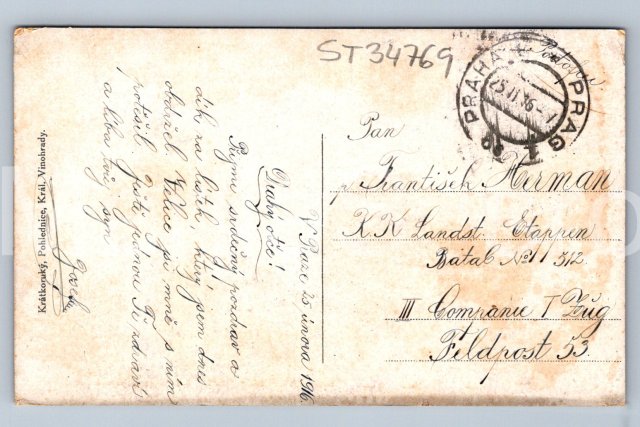 ST34769
PRAHA
PRAG
25.II.16
Pan
František Herman
K K Landst. Etappen
Batal No 312
III Companie I Zug
Feldpost 53
V Praze 25 února 1916.
Drahý otče!
Přijmi srdečný pozdrav a
dík za lístek, který jsem dnes
obdržel. Velice jsi mně s ním
potěšil. Ještě jednou Tě zdraví
a líbá tvůj syn
Krátkoruký, Pohlednice, Král. Vinohrady.